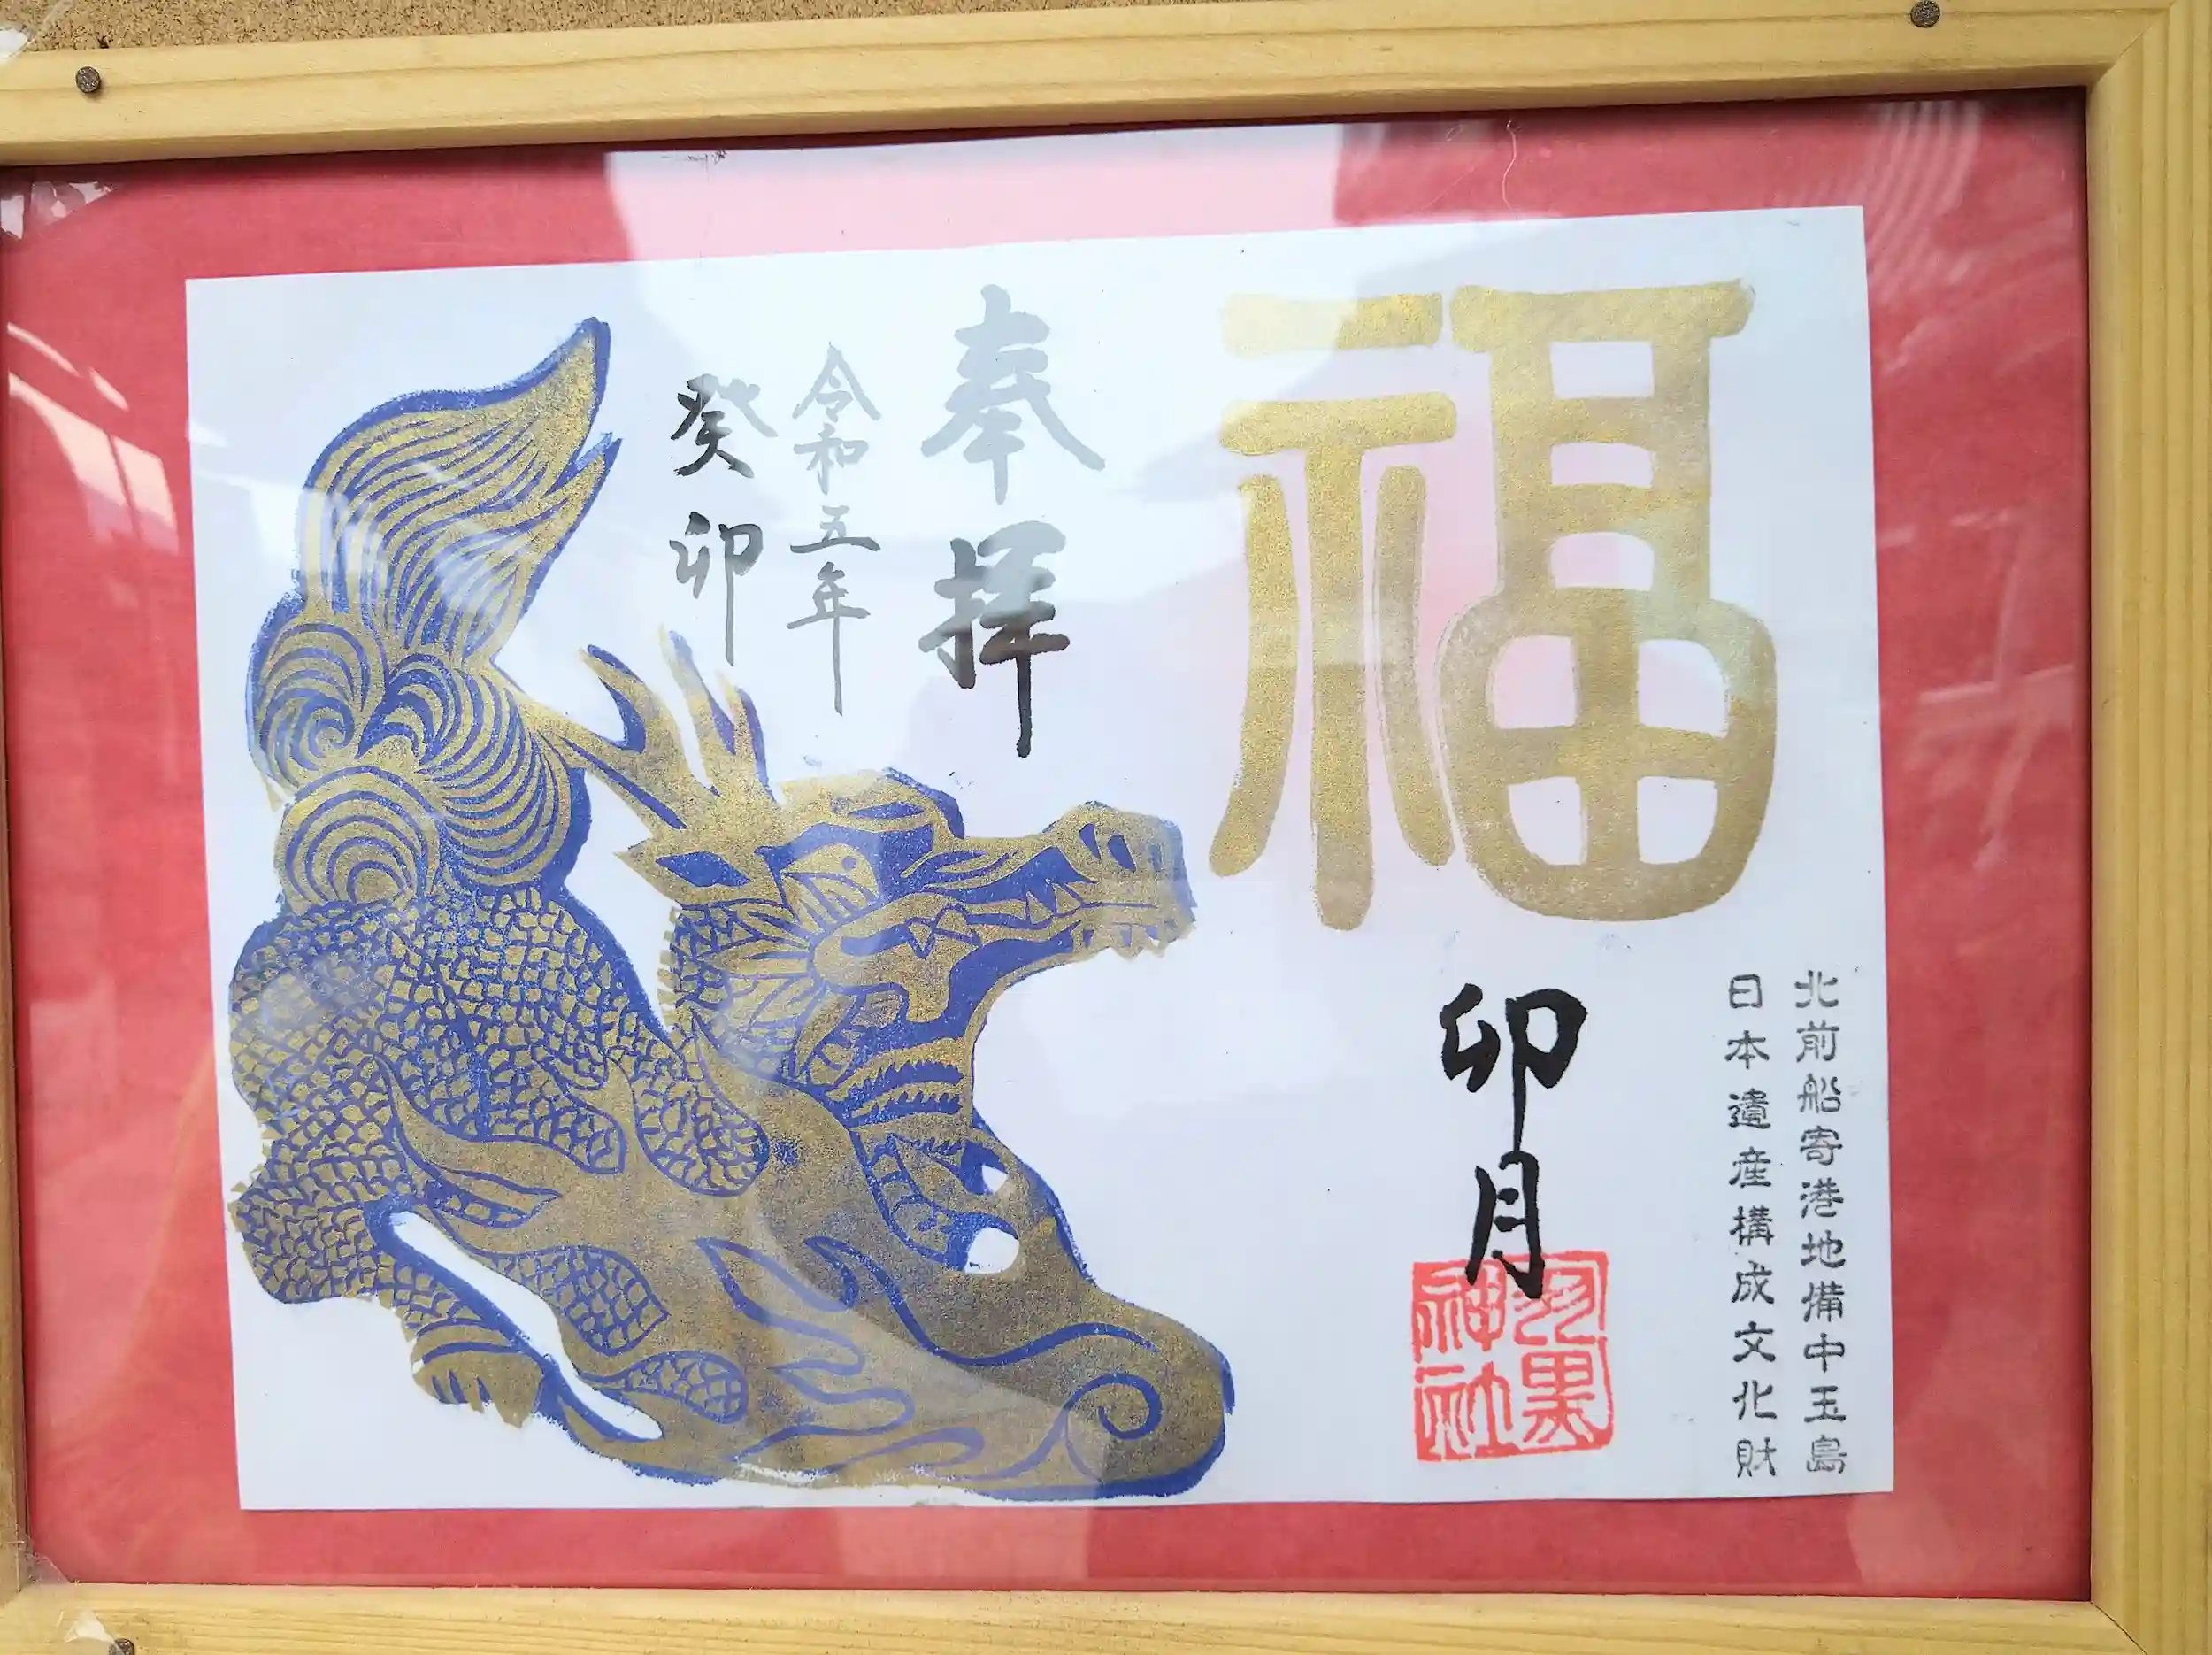 福
卯月
羽黒
神社
北前船寄港地備中玉島
日本遺産構成文化財
奉拝
令和五年
癸卯